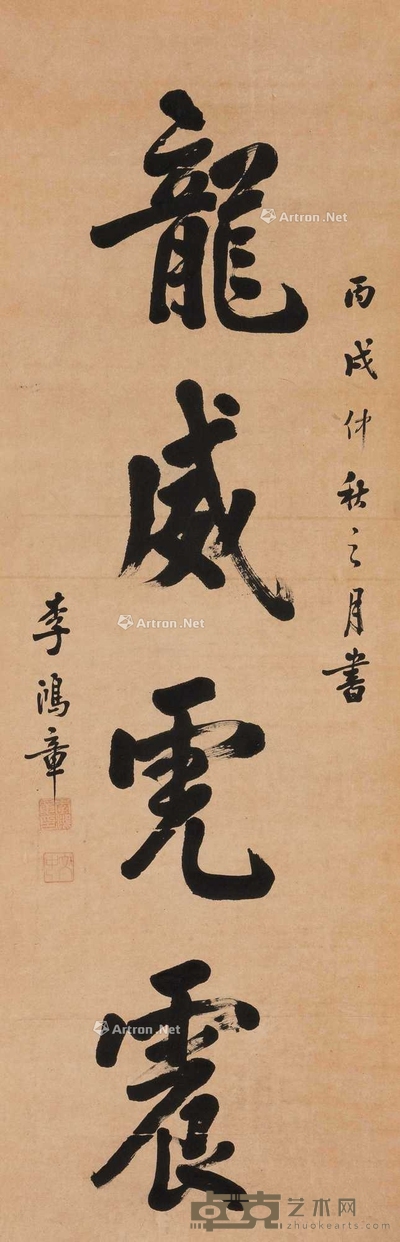 丙戌仲秋之月書
龍威虎震
李鴻章
Artron.Net
Artron.Net
Artron.Net
Artron.Net
卓克艺术网
zhuokearts.com